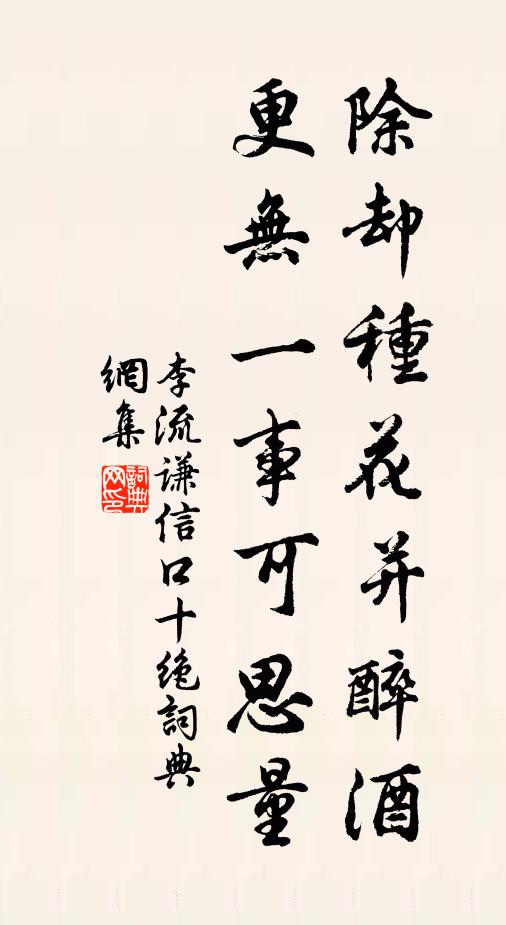 除却種花并醉酒
更無一事可思量
李流謙信口十絶詞典
網集
詞典網印